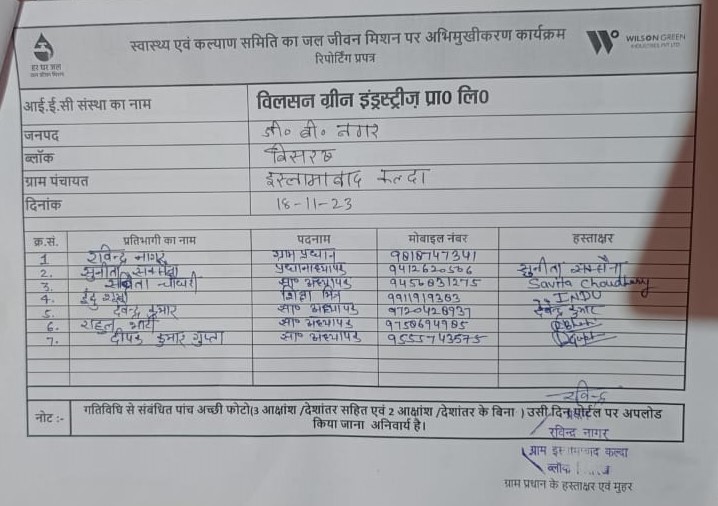 स्वास्थ्य एवं कल्याण समिति का जल जीवन मिशन पर अभिमुखीकरण कार्यक्रम
रिपोर्टिंग प्रपत्र
हर घर जल
WILSON GREEN
INDUSTRIES PVT LTD
आई.ई.सी संस्था का नाम विलसन ग्रीन इंड्स्ट्रीज़ प्रा0 लि0
जनपद जी० बी० नगर
ब्लॉक बिसरख
ग्राम पंचायत इस्लामाबाद कल्दा
दिनांक 18-11-23
क्र.सं. प्रतिभागी का नाम पदनाम मोबाइल नंबर हस्ताक्षर
1 रविन्द्र नागर ग्राम प्रधान 9818747341
2. सुनीता सक्सेना प्रधानाध्यापक 9412620566 सुनीता सक्सैना
3. सविता चौधरी स० अध्यापक 9456831275 Savita Choudhery
4. इंदु शर्मा शिक्षा मित्र 9911919383 INDU
5. देवेन्द्र कुमार स० अध्यापक 9720428937 देवेन्द्र कुमार
6. राहुल भाटी स० अध्यापक 9758694985
7. दीपक कुमार गुप्ता स० अध्यापक 9555743575
नोट :- गतिविधि से संबंधित पांच अच्छी फोटो(3 आक्षांश /देशांतर सहित एवं 2 आक्षांश /देशांतर के बिना ) उसी दिन पोर्टल पर अपलोड
किया जाना अनिवार्य है।
रविन्द्र नागर
ग्राम इस्लामाबाद कल्दा
ब्लॉक
ग्राम प्रधान के हस्ताक्षर एवं मुहर